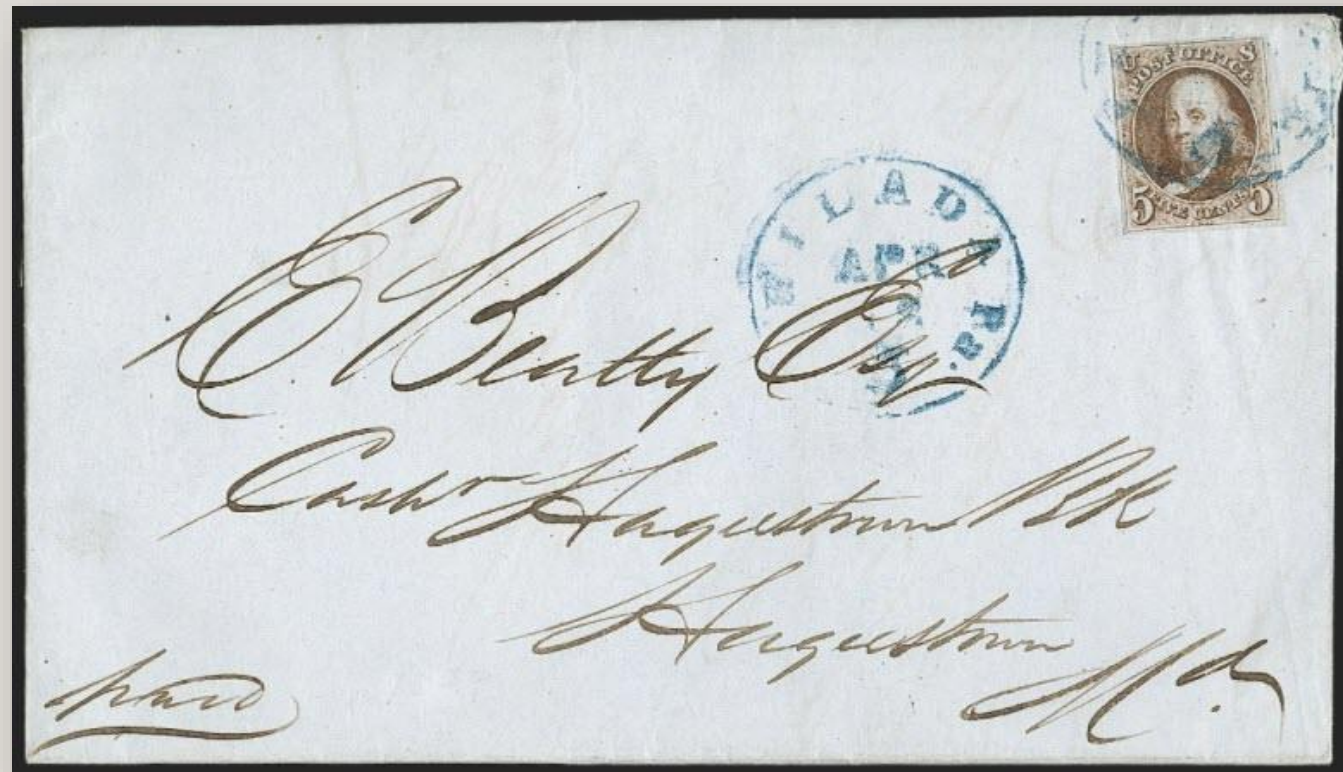 U S
POST OFFICE
5 FIVE CENTS 5
PHILADA Pa.
APR
E Beatty Esqr
Cashr Hagerstown Bk
Hagerstown
Md.
paid